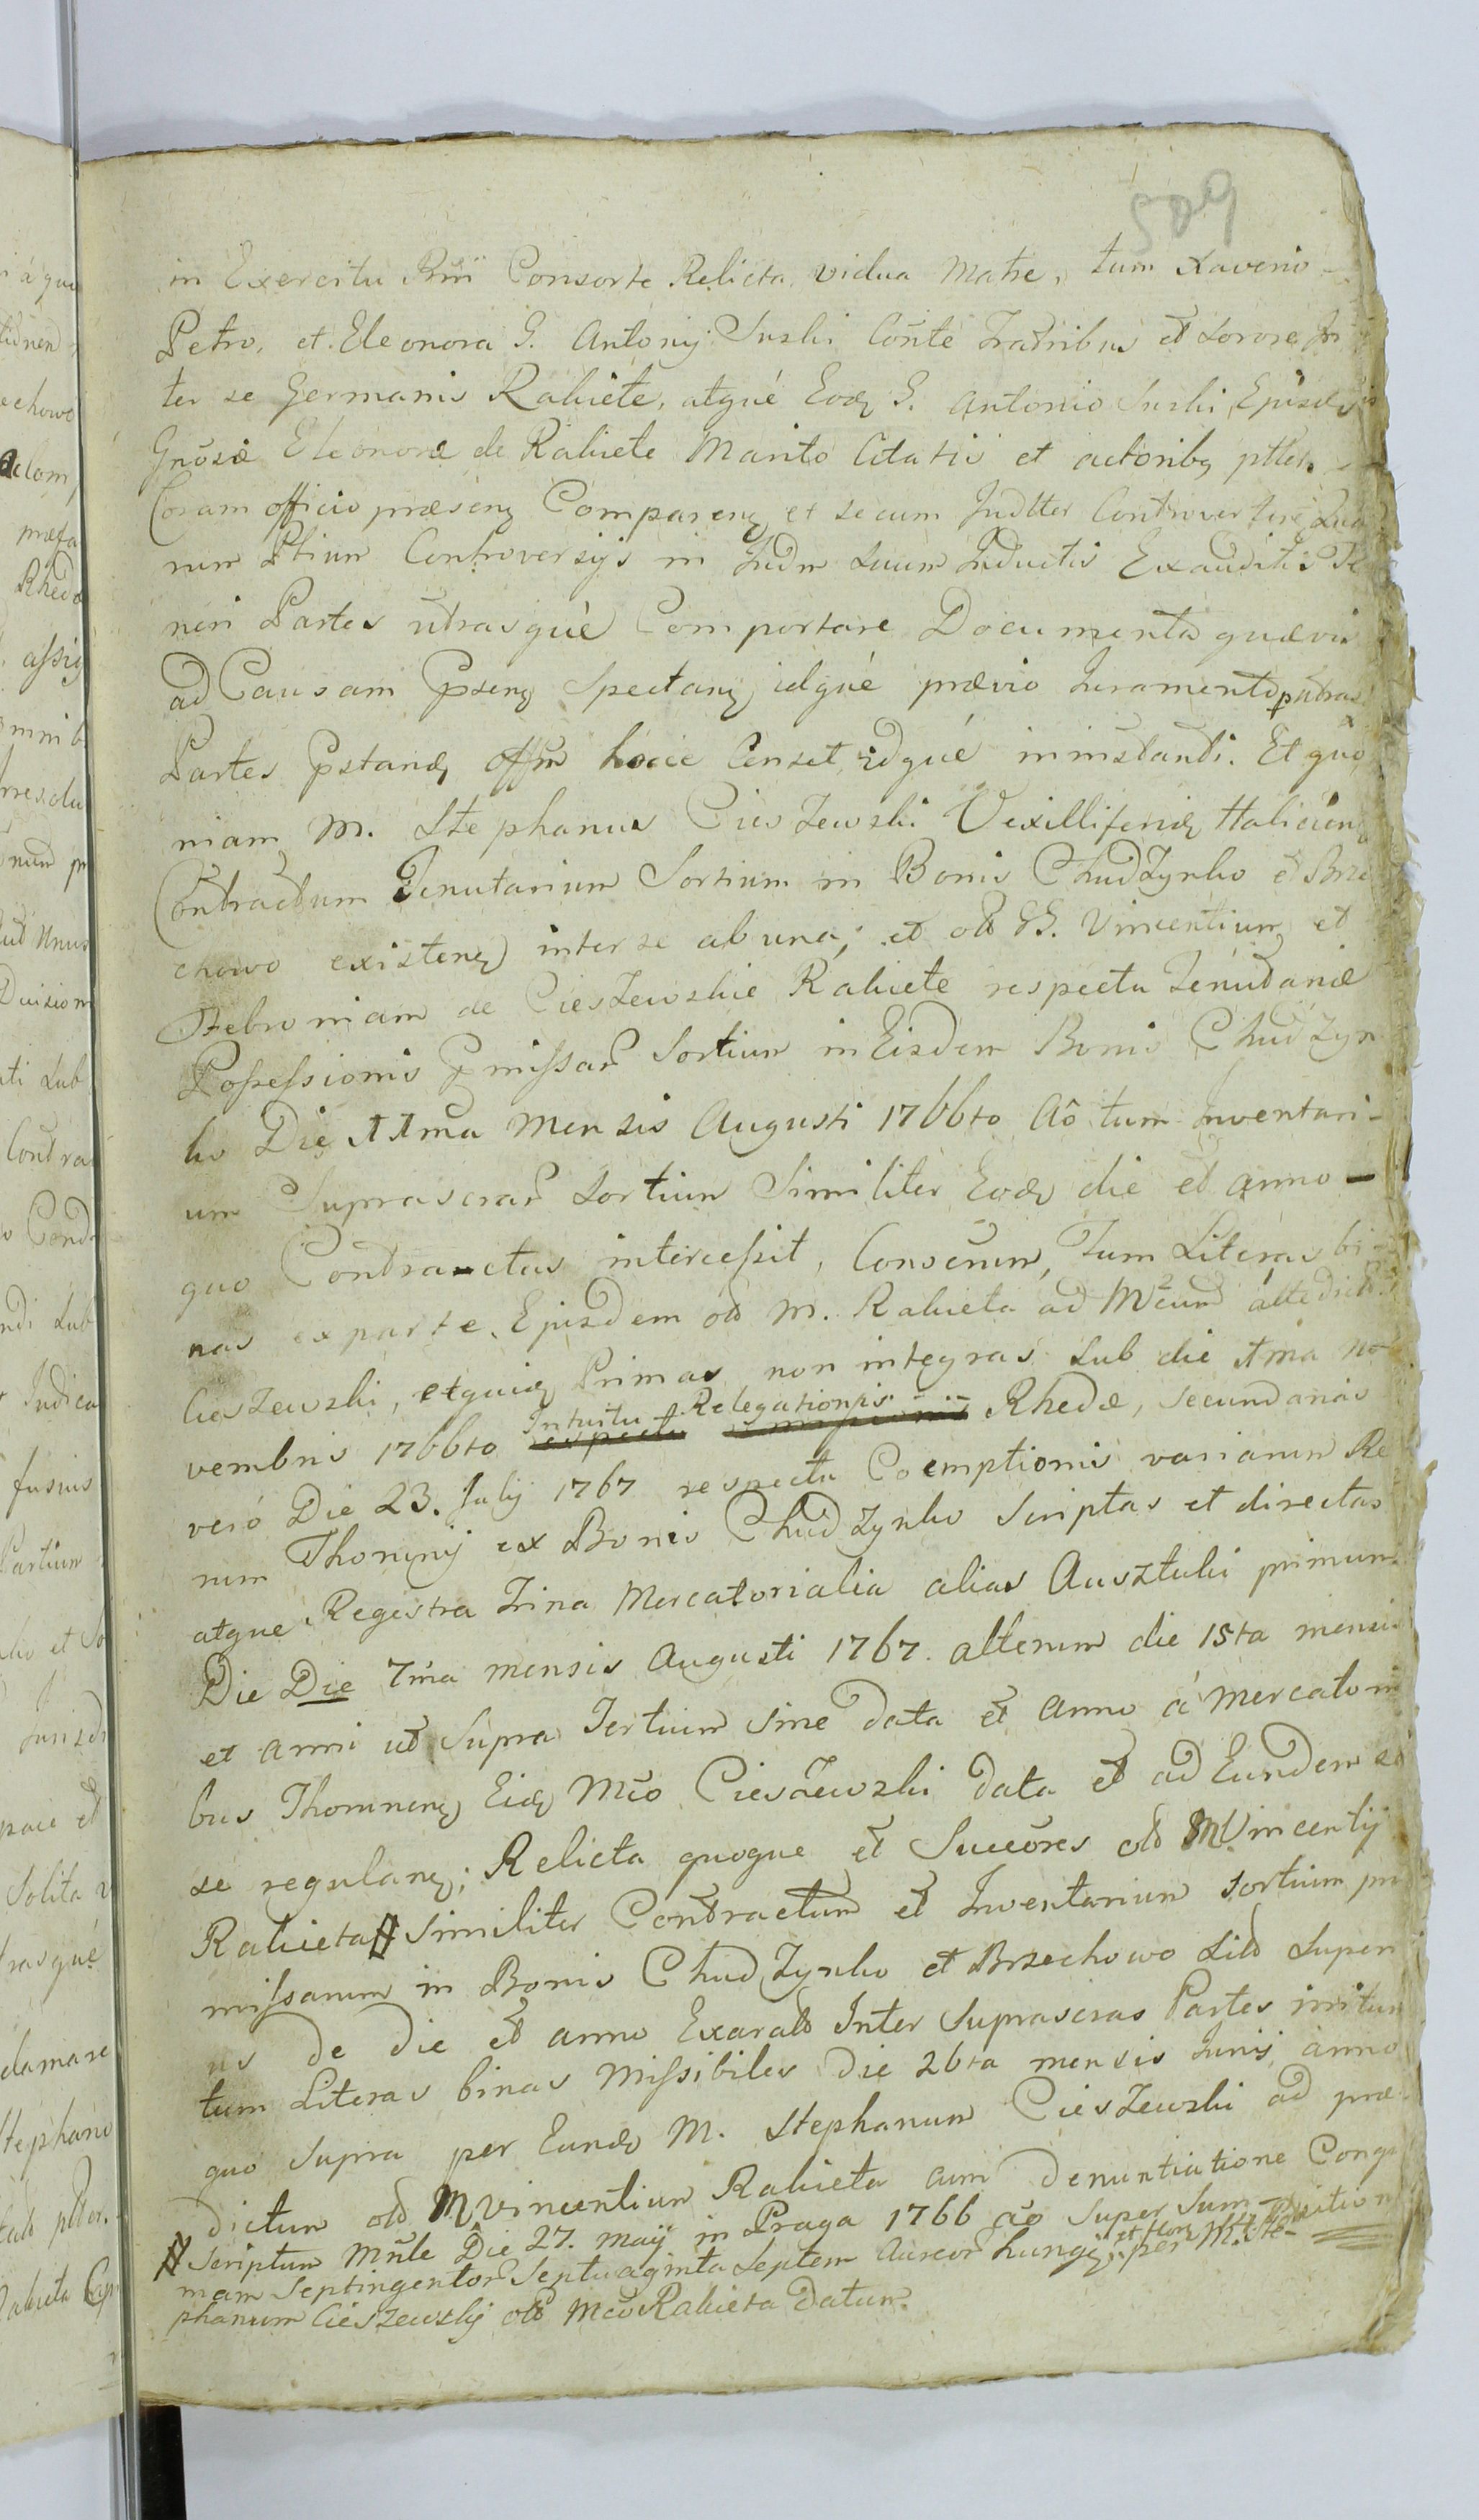 509
in Exercitu Rnii Consorte Relicta vidua Matre, tum Xaverio
Petro, et Eleonora G. Antonij Suski Conte Fratribus et Sorore In
ter se Germanis Rakiete, atqué Eodę G. Antonio Suski, Ejusdę
Gnosæ Eleonoræ de Rakiete Marito Citatis et actoribq ptter
Coram officio præsenę Comparenę et secum Judtter Controvertenę Qua
rum Ptium Controversijs in Judm suum Inductis Exauditis Te
neri Partes utrasqué Comportare Documenta quævis
ad Causam Pnsenę Spectanę idqué prævio Juramento p utras
Partes Pstandę Offm hocce Censet, idqué in instanti. Et quo
niam M. Stephanus Cieszewski Vexilliferidę Haliciénę
Contractum Tenutarium Sortium in Bonis Chudzynko et Brze
chowo existenę inter se ab una, et olb GG. Vincentium et
Febroniam de Cieszewskie Rakiete respectu Tenutariæ
Possessionis Pmissar Sortium in Eisdem Bonis Chudzyn
ko Die 11ma Mensis Augusti 1766to Ao tum Inventari-
um Suprascrar Sortium Similiter Eodę die et anno -
quo Contractus intercessit, Conscrium, Tum Literas bi
nas ex parte Ejusdem olb M. Rakieta ad Mcum altedictū
Cieszewski, et quidę Primas non integras sub die 1ma No
vembris 1766to Intuitu Relegationis Rhedæ, secundarias
veró Die 23. Julij 1767 respectu Coemptionis variarum Re
rum Thorunij ex Bonis Chudzynko Scriptas et directas
atque Regestra Trina Mercatorialia alias Ausztuki primum
Die Die 7ma mensis Augusti 1767. alterum die 15ta mensis
et anni ut Supra Tertium sine data et anno á Mercatori
bus Thorunenę Eidę Mco Cieszewski data et ad Eundem
se regulanę; Relicta quoque et Succores olb M. Vincentij
Rakieta # similiter Contractum et Inventarium sortium præ
missarum in Bonis Chudzynko et Brzechowo Sub Superi
us de die et anno Exarato Inter Suprascras Partes initum
tum Literas binas Missibiles Die 26ta mensis Junij anno
quo supra per Eundę M. Stephanum Cieszewski ad præ
dictum olb M Vincentium Rakieta cum Denuntiatione Comp
# Scriptum Mnle Die 27. Maij in Praga 1766 ao Super Sum-
mam Septingentor Septuaginta Septem Aureor hungę et flor per M. Ste-
phanum Cieszewskij olb Mco Rakieta Datum.